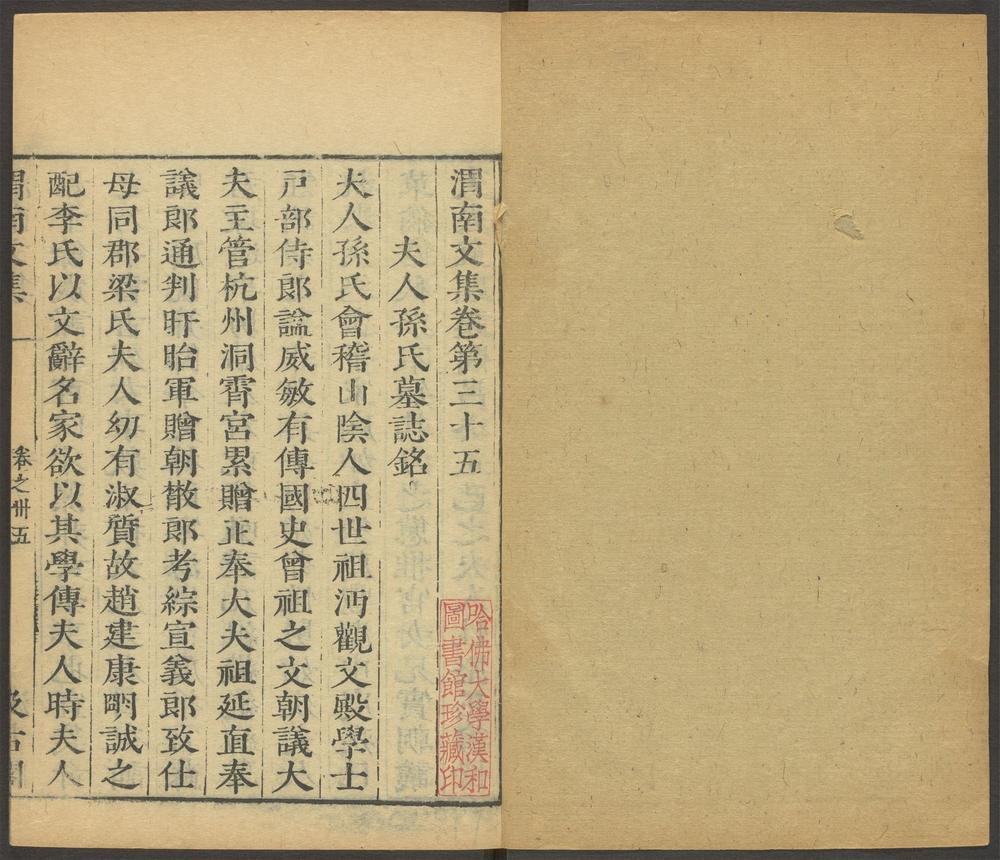 渭南文集卷第三十五
夫人孫氏墓誌銘
夫人孫氏會稽山陰人四世祖沔觀文殿學士
戸部侍郎諡威敏有傳國史曾祖之文朝議大
夫主管杭州洞霄宮累贈正奉大夫祖延直奉
議郎通判盱眙軍贈朝散郎考綜宣義郎致仕
母同郡梁氏夫人幼有淑質故趙建康明誠之
配李氏以文辭名家欲以其學傳夫人時夫人
渭南文集
卷之卅五
汲古閣
哈佛大學漢和
圖書館珍藏印